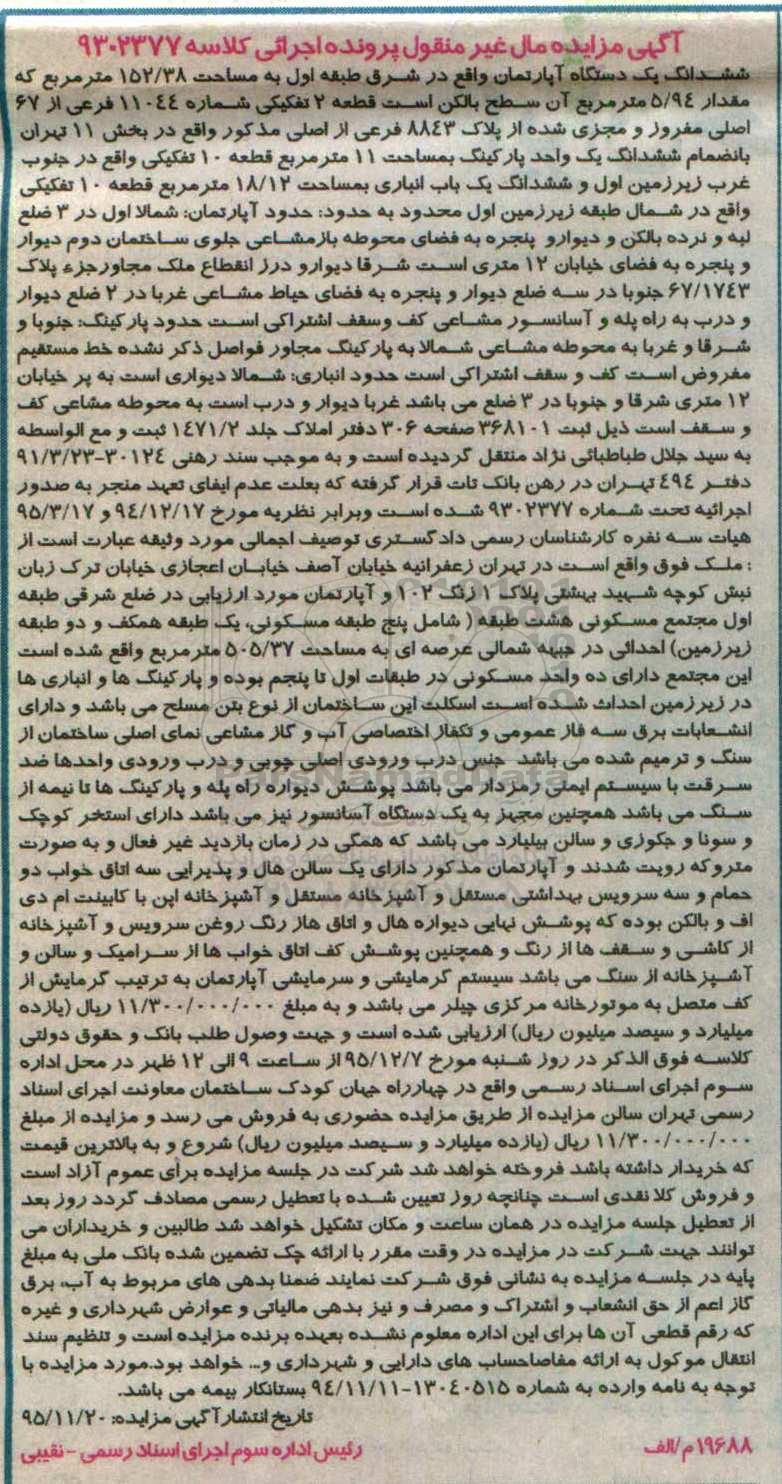 آگهی مزایده مال غیر منقول پرونده اجرائی کلاسه ۹۳۰۲۳۷۷
ششدانگ یک دستگاه آپارتمان واقع در شرق طبقه اول به مساحت ۱۵۲/۳۸ مترمربع که
مقدار ۵/۹٤ مترمربع آن سطح بالکن است قطعه ۲ تفکیکی شماره ۱۱۰٤٤ فرعی از ۶۷
اصلی مفروز و مجزی شده از پلاک ۸۸٤۳ فرعی از اصلی مذکور واقع در بخش ۱۱ تهران
بانضمام ششدانگ یک واحد پارکینگ بمساحت ۱۱ مترمربع قطعه ۱۰ تفکیکی واقع در جنوب
غرب زیرزمین اول و ششدانگ یک باب انباری بمساحت ۱۸/۱۲ مترمربع قطعه ۱۰ تفکیکی
واقع در شمال طبقه زیرزمین اول محدود به حدود: حدود آپارتمان: شمالا اول در ۳ ضلع
لبه و نرده بالکن و دیوارو پنجره به فضای محوطه بازمشاعی جلوی ساختمان دوم دیوار
و پنجره به فضای خیابان ۱۲ متری است شرقا دیوارو درز انقطاع ملک مجاورجزء پلاک
۶۷/۱۷٤۳ جنوبا در سه ضلع دیوار و پنجره به فضای حیاط مشاعی غربا در ۲ ضلع دیوار
و درب به راه پله و آسانسور مشاعی کف وسقف اشتراکی است حدود پارکینگ: جنوبا و
شرقا و غربا به محوطه مشاعی شمالا به پارکینگ مجاور فواصل ذکر نشده خط مستقیم
مفروض است کف و سقف اشتراکی است حدود انباری: شمالا دیواری است به پر خیابان
۱۲ متری شرقا و جنوبا در ۳ ضلع می باشد غربا دیوار و درب است به محوطه مشاعی کف
و سقف است ذیل ثبت ۳۶۸۱۰۱ صفحه ۳۰۶ دفتر املاک جلد ۱٤۷۱/۲ ثبت و مع الواسطه
به سید جلال طباطبائی نژاد منتقل گردیده است و به موجب سند رهنی ۳۰۱۲٤-۹۱/۳/۲۳
دفتر ٤۹٤ تهران در رهن بانک تات قرار گرفته که بعلت عدم ایفای تعهد منجر به صدور
اجرائیه تحت شماره ۹۳۰۲۳۷۷ شده است وبرابر نظریه مورخ ۹٤/۱۲/۱۷ و ۹۵/۳/۱۷
هیات سه نفره کارشناسان رسمی دادگستری توصیف اجمالی مورد وثیقه عبارت است از
: ملک فوق واقع است در تهران زعفرانیه خیابان آصف خیابان اعجازی خیابان ترک زبان
نبش کوچه شهید بهشتی پلاک ۱ زنگ ۱۰۲ و آپارتمان مورد ارزیابی در ضلع شرقی طبقه
اول مجتمع مسکونی هشت طبقه ( شامل پنج طبقه مسکونی، یک طبقه همکف و دو طبقه
زیرزمین) احداثی در جبهه شمالی عرصه ای به مساحت ۵۰۵/۳۷ مترمربع واقع شده است
این مجتمع دارای ده واحد مسکونی در طبقات اول تا پنجم بوده و پارکینگ ها و انباری ها
در زیرزمین احداث شده است اسکلت این ساختمان از نوع بتن مسلح می باشد و دارای
انشعابات برق سه فاز عمومی و تکفاز اختصاصی آب و گاز مشاعی نمای اصلی ساختمان از
سنگ و ترمیم شده می باشد جنس درب ورودی اصلی چوبی و درب ورودی واحدها ضد
سرقت با سیستم ایمنی رمزدار می باشد پوشش دیواره راه پله و پارکینگ ها تا نیمه از
سنگ می باشد همچنین مجهز به یک دستگاه آسانسور نیز می باشد دارای استخر کوچک
و سونا و جکوزی و سالن بیلیارد می باشد که همگی در زمان بازدید غیر فعال و به صورت
متروکه رویت شدند و آپارتمان مذکور دارای یک سالن هال و پذیرایی سه اتاق خواب دو
حمام و سه سرویس بهداشتی مستقل و آشپزخانه مستقل و آشپزخانه اپن با کابینت ام دی
اف و بالکن بوده که پوشش نهایی دیواره هال و اتاق هاز رنگ روغن سرویس و آشپزخانه
از کاشی و سقف ها از رنگ و همچنین پوشش کف اتاق خواب ها از سرامیک و سالن و
آشپزخانه از سنگ می باشد سیستم گرمایشی و سرمایشی آپارتمان به ترتیب گرمایش از
کف متصل به موتورخانه مرکزی چیلر می باشد و به مبلغ ۱۱/۳۰۰/۰۰۰/۰۰۰ ریال (یازده
میلیارد و سیصد میلیون ریال) ارزیابی شده است و جهت وصول طلب بانک و حقوق دولتی
کلاسه فوق الذکر در روز شنبه مورخ ۹۵/۱۲/۷ از ساعت ۹ الی ۱۲ ظهر در محل اداره
سوم اجرای اسناد رسمی واقع در چهارراه جهان کودک ساختمان معاونت اجرای اسناد
رسمی تهران سالن مزایده از طریق مزایده حضوری به فروش می رسد و مزایده از مبلغ
۱۱/۳۰۰/۰۰۰/۰۰۰ ریال (یازده میلیارد و سیصد میلیون ریال) شروع و به بالاترین قیمت
که خریدار داشته باشد فروخته خواهد شد شرکت در جلسه مزایده برای عموم آزاد است
و فروش کلا نقدی است چنانچه روز تعیین شده با تعطیل رسمی مصادف گردد روز بعد
از تعطیل جلسه مزایده در همان ساعت و مکان تشکیل خواهد شد طالبین و خریداران می
توانند جهت شرکت در مزایده در وقت مقرر با ارائه چک تضمین شده بانک ملی به مبلغ
پایه در جلسه مزایده به نشانی فوق شرکت نمایند ضمنا بدهی های مربوط به آب، برق
گاز اعم از حق انشعاب و اشتراک و مصرف و نیز بدهی مالیاتی و عوارض شهرداری و غیره
که رقم قطعی آن ها برای این اداره معلوم نشده بعهده برنده مزایده است و تنظیم سند
انتقال موکول به ارائه مفاصاحساب های دارایی و شهرداری و... خواهد بود.مورد مزایده با
توجه به نامه وارده به شماره ۱۳۰٤۰۵۱۵-۹٤/۱۱/۱۱ بستانکار بیمه می باشد.
تاریخ انتشار آگهی مزایده: ۹۵/۱۱/۲۰
۱۹۶۸۸ م/الف رئیس اداره سوم اجرای اسناد رسمی - نقیبی
ParsNamadData